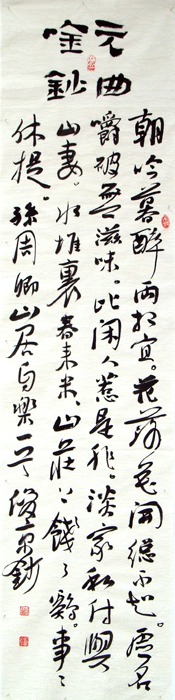 元曲
唫鈔
朝吟暮醉両相宜。花落花開總不知。虚名
嚼破無滋味。比闲人惹是非。淡家私付與
山妻。水堆裏舂来米、山莊上餞了鷄。事〻
休提。孫周卿山居自樂一首 鈔